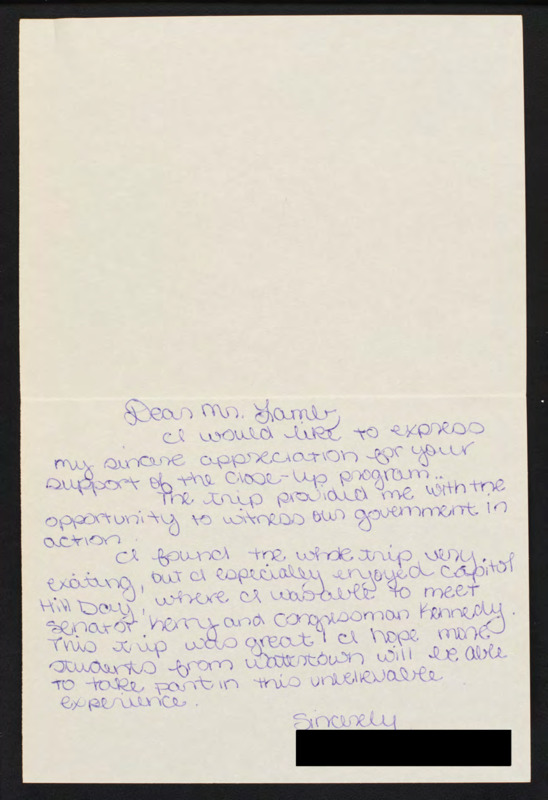 Dear Mr. Lamb,
I would like to express
my sincere appreciation for your
support of the close-up program.
The trip provided me with the
opportunity to witness our government in
action.
I found the whole trip very
exiting, but I especially enjoyed Capitol
Hill Day, where I was able to meet
Senator Kerry and Congressman Kennedy.
This trip was great I hope more
students from Watertown will be able
to take part in this unbelievable
experience.
Sincerely